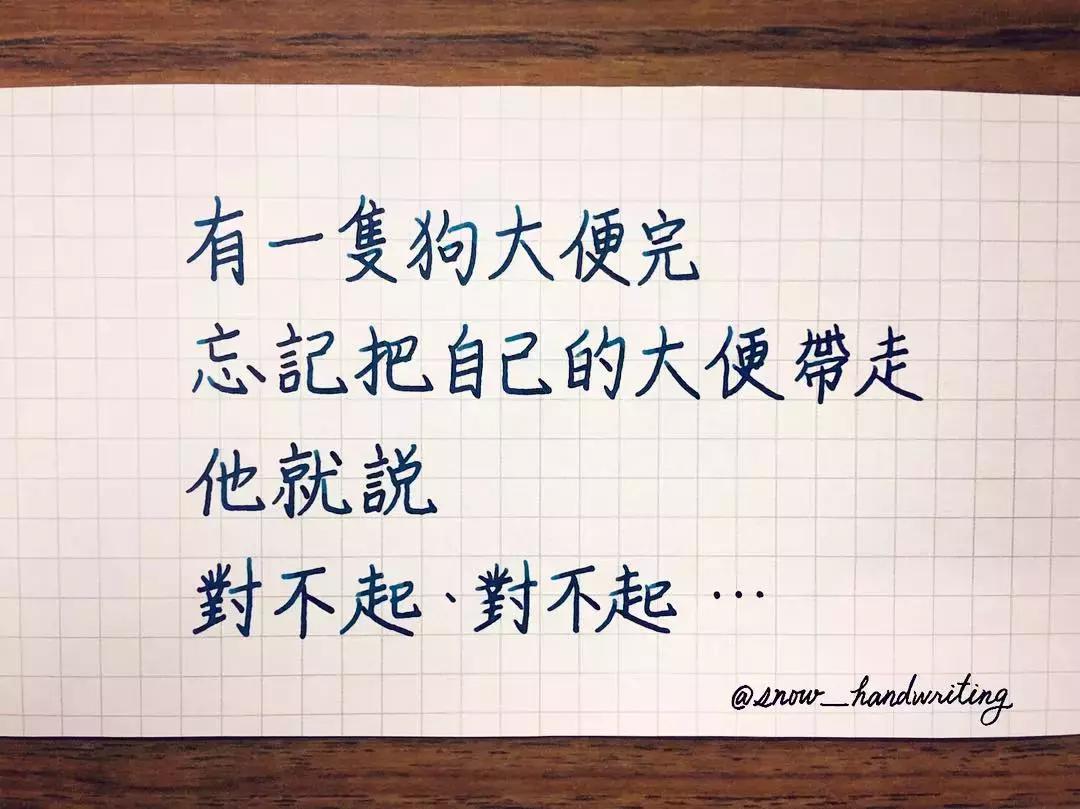 有一隻狗大便完
忘記把自己的大便帶走
他就説
對不起、對不起…
@snow_handwriting